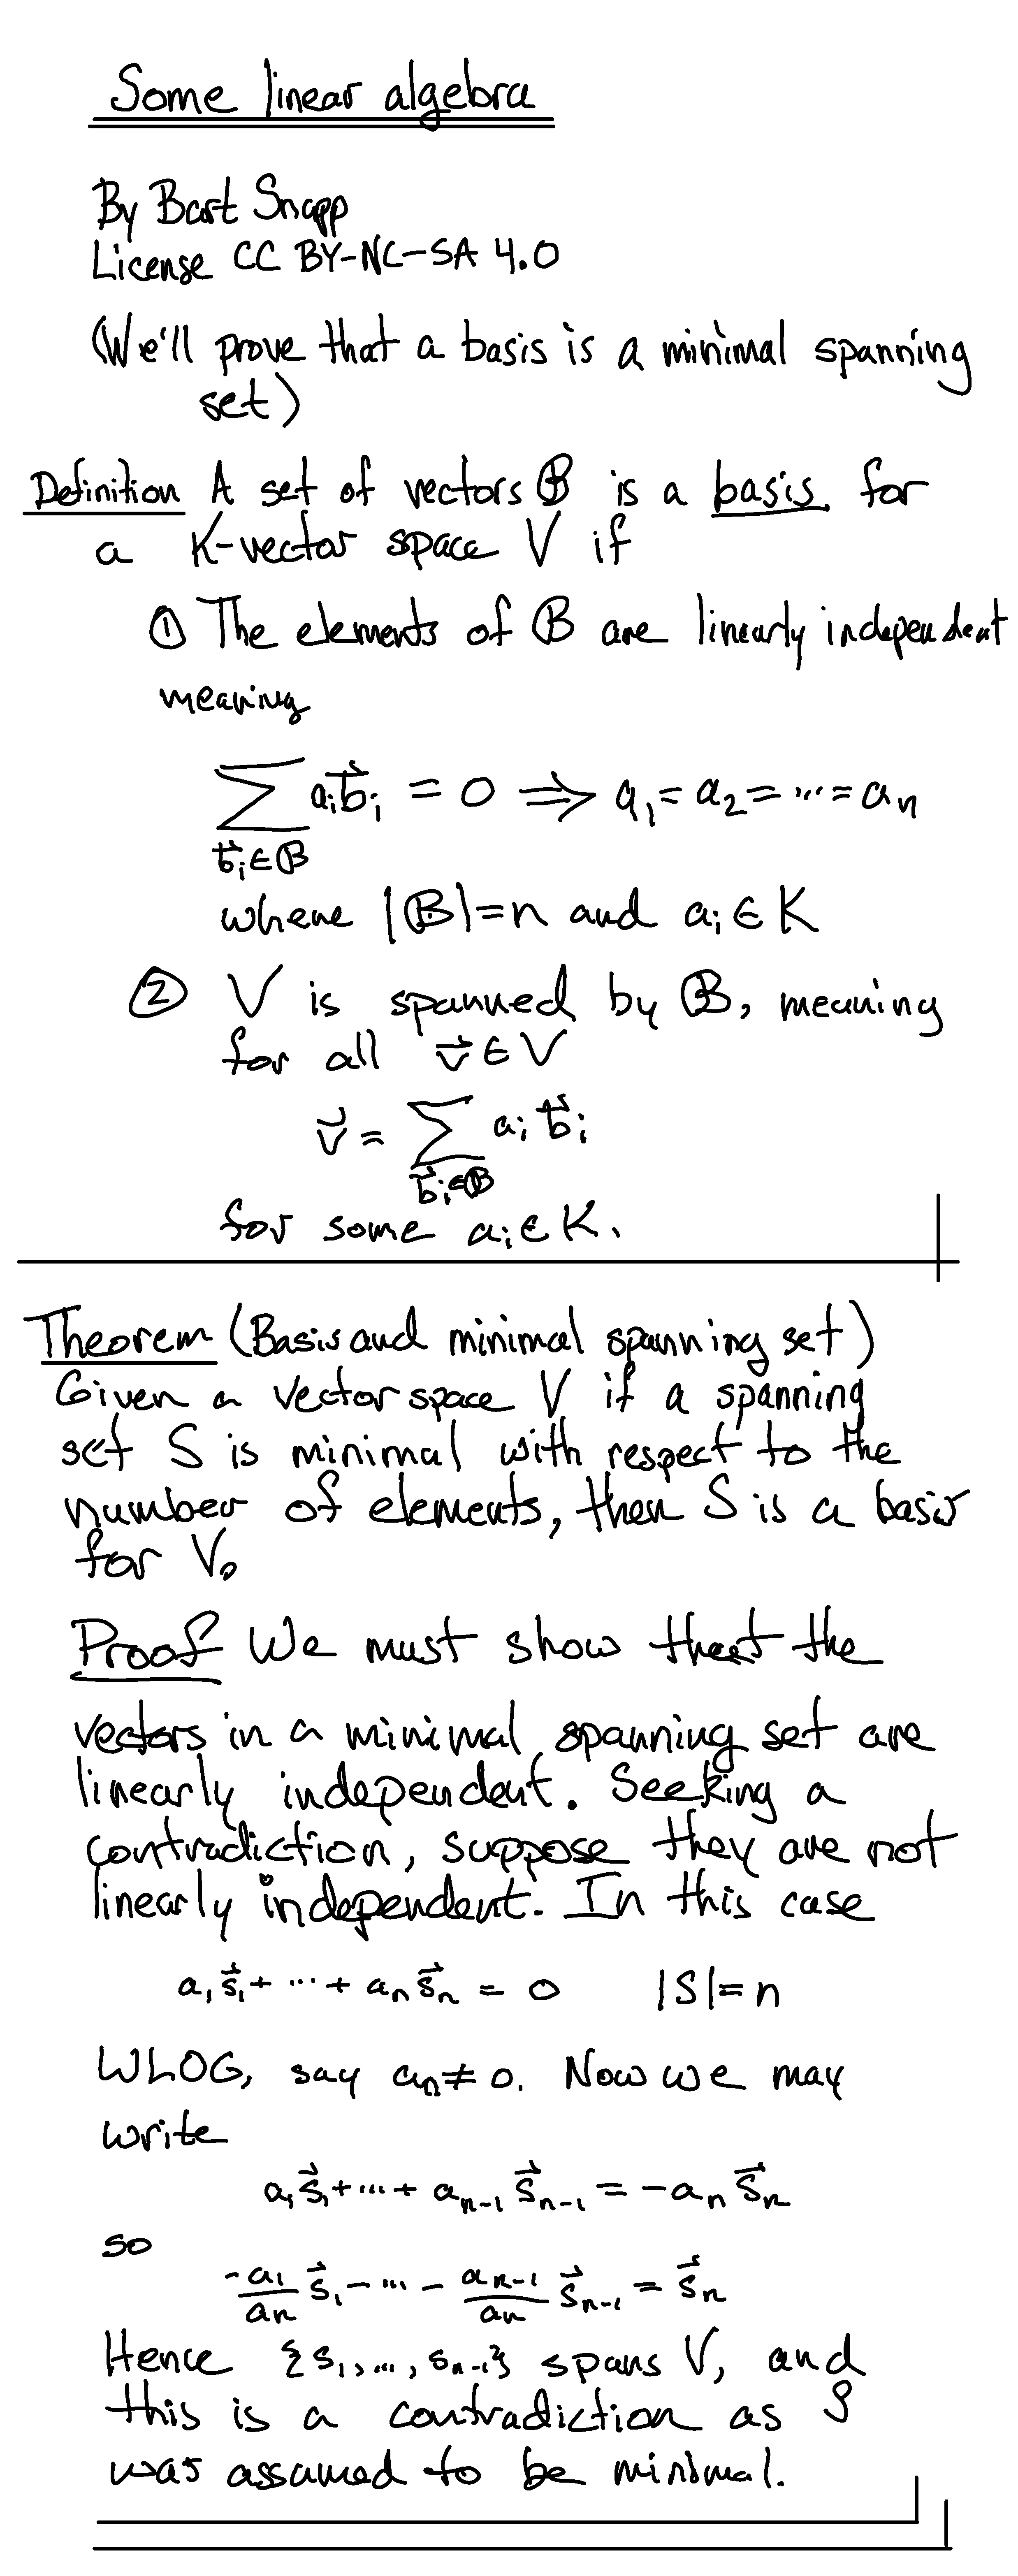 Some linear algebra
By Bart Snapp
License CC BY-NC-SA 4.0
(We'll prove that a basis is a minimal spanning
set)
Definition A set of vectors 𝔹 is a basis for
a K-vector space V if
① The elements of 𝔹 are linearly independent
meaning
∑ aᵢb⃗ᵢ = 0 ⟹ a₁ = a₂ = ⋯ = aₙ
b⃗ᵢ∈𝔹
where |𝔹|=n and aᵢ ∈ K
② V is spanned by 𝔹, meaning
for all v⃗ ∈ V
v⃗ = ∑ aᵢ b⃗ᵢ
b⃗ᵢ∈𝔹
for some aᵢ ∈ K.
Theorem (Basis and minimal spanning set)
Given a vector space V if a spanning
set S is minimal with respect to the
number of elements, then S is a basis
for V.
Proof We must show that the
vectors in a minimal spanning set are
linearly independent. Seeking a
contradiction, suppose they are not
linearly independent. In this case
a₁s⃗₁ + ⋯ + aₙs⃗ₙ = 0 |S|=n
WLOG, say aₙ ≠ 0. Now we may
write
a₁s⃗₁ + ⋯ + aₙ₋₁ s⃗ₙ₋₁ = -aₙ s⃗ₙ
so
-a₁/aₙ s⃗₁ - ⋯ - aₙ₋₁/aₙ s⃗ₙ₋₁ = s⃗ₙ
Hence {s₁,…, sₙ₋₁} spans V, and
this is a contradiction as S
was assumed to be minimal.